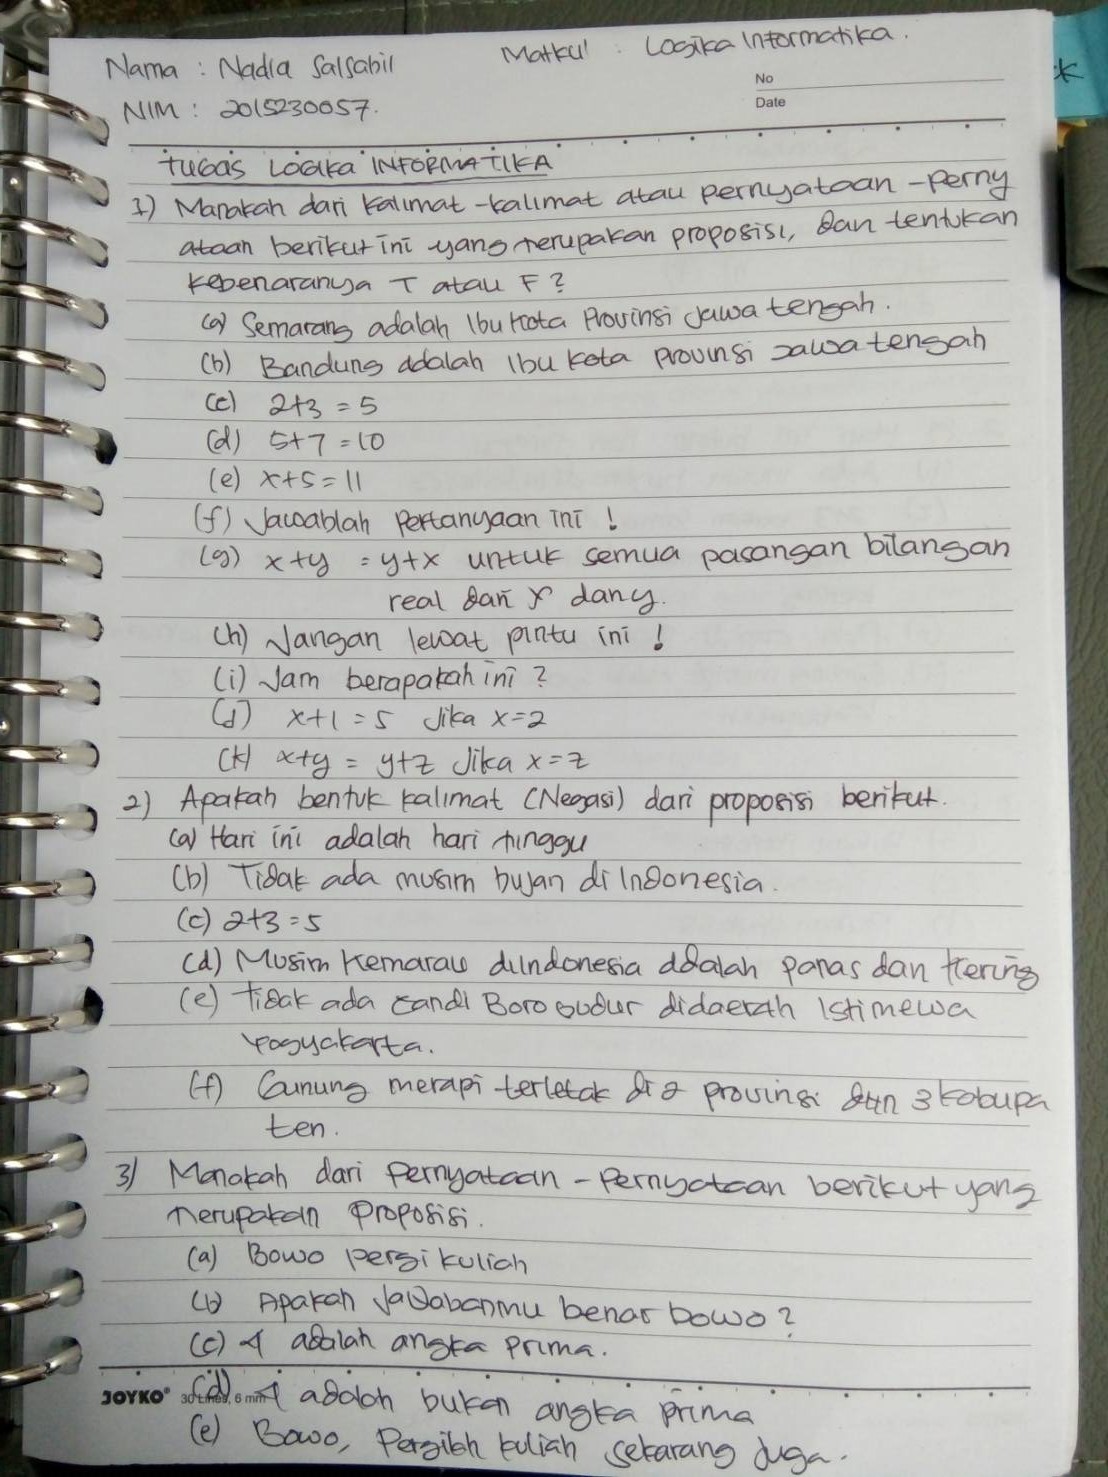 Nama : Nadia Salsabil
Matkul : Logika Informatika.
NIM : 2015230057.
No
Date
TUGAS LOGIKA INFORMATIKA
1) Manakah dari kalimat-kalimat atau pernyataan-perny
ataan berikut ini yang merupakan proposisi, dan tentukan
kebenaranya T atau F?
(a) Semarang adalah Ibu Kota Provinsi Jawa tengah.
(b) Bandung adalah Ibu kota provinsi Jawa tengah
(c) 2+3 = 5
(d) 5+7 = 10
(e) x+5 = 11
(f) Jawablah Pertanyaan ini !
(g) x+y = y+x untuk semua pasangan bilangan
real dari x dan y.
(h) Jangan lewat pintu ini !
(i) Jam berapakah ini ?
(j) x+1 = 5 Jika x=2
(k) x+y = y+z Jika x = z
2) Apakah bentuk kalimat (Negasi) dari proposisi berikut.
(a) Hari ini adalah hari minggu
(b) Tidak ada musim hujan di Indonesia.
(c) 2+3 = 5
(d) Musim Kemarau diIndonesia adalah panas dan Kering
(e) Tidak ada candi Borobudur didaerah Istimewa
Yogyakarta.
(f) Gunung merapi terletak di 2 provinsi dan 3 kabupa
ten.
3) Manakah dari Pernyataan-Pernyataan berikut yang
merupakan Proposisi.
(a) Bowo pergi kuliah
(b) Apakah Jawabanmu benar bowo ?
(c) 4 adalah angka Prima.
(d) 4 adalah bukan angka prima
JOYKO® 30 Lines, 6 mm
(e) Bowo, Pergilah kuliah sekarang Juga.